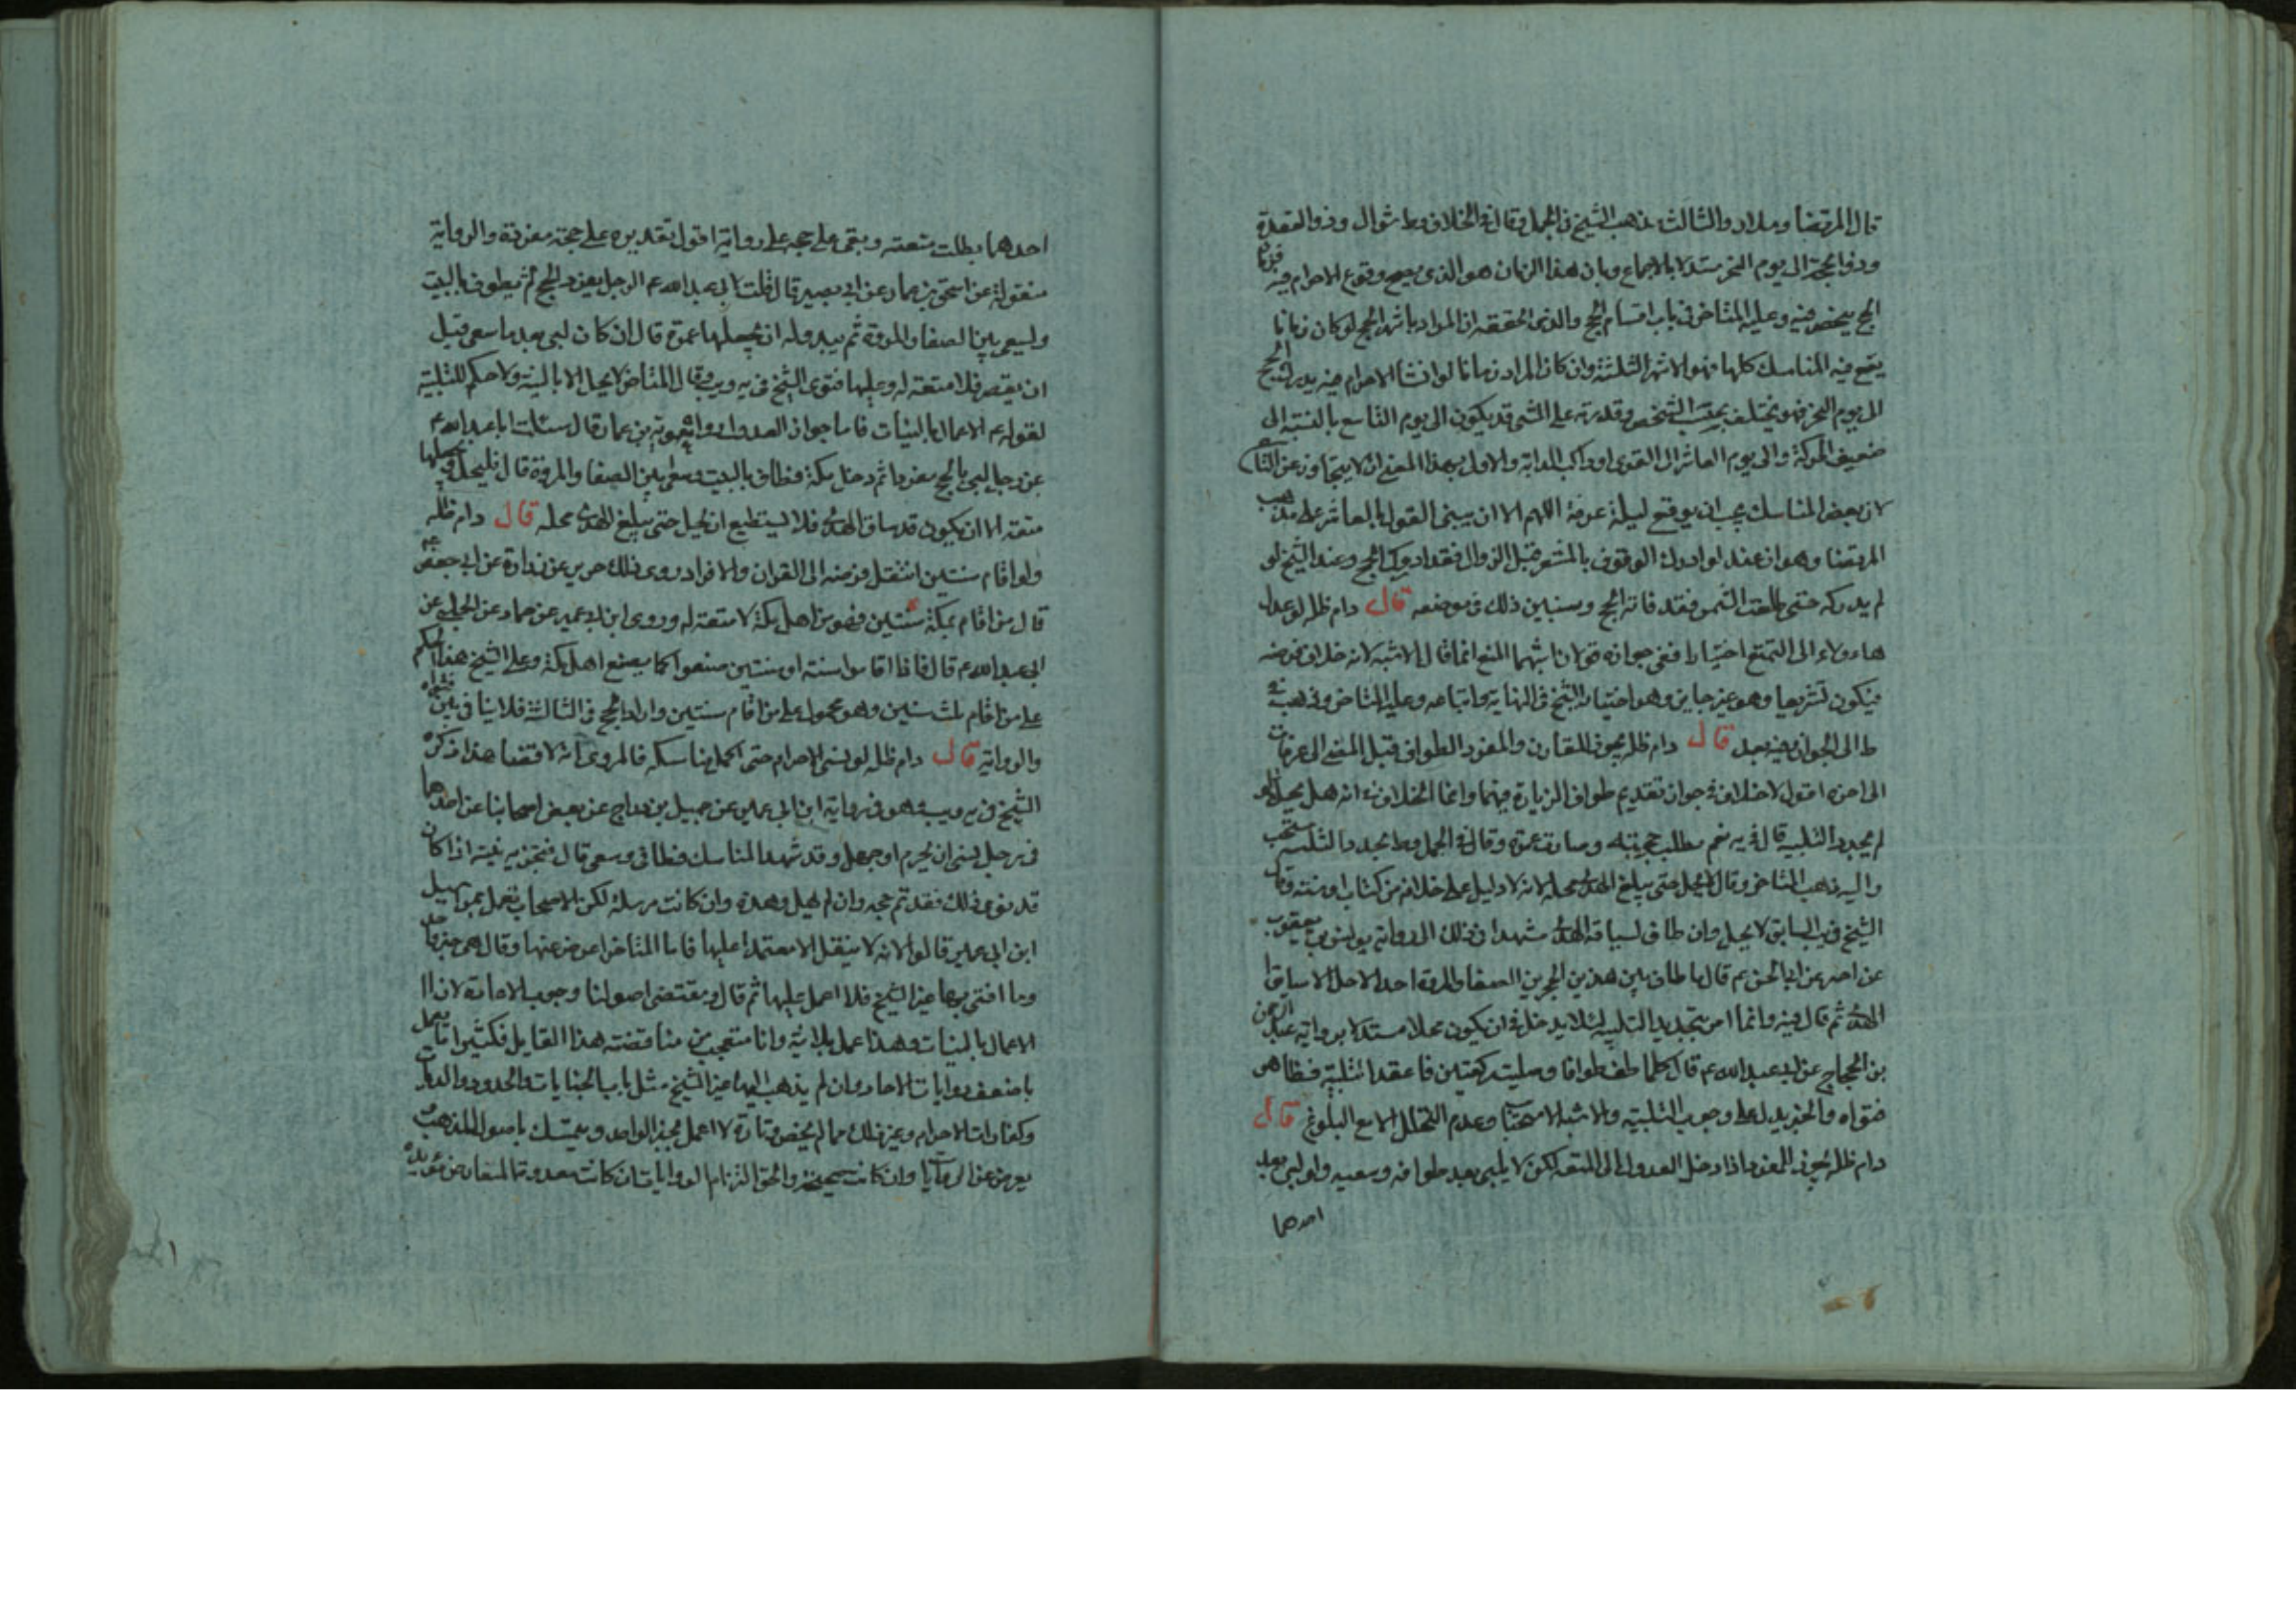 قال المرتضا وسلار والثالث مذهب الشيخ في الجمل وقال في الخلاف وط شوال وذو القعدة
وذو الحجة الى يوم النحر مستدلا بالاجماع وبان هذا الزمان هو الذي يصح وقوع الاحرام فيه
الحج فيه وعليه المتاخر في باب اقسام الحج والذي احققه ان المراد باشهر الحج لو كان زمانا
يقع فيه المناسك كلها فهو الاشهر الثلثة وان كان المراد زمانا لو انشا الاحرام فيه يدرك الحج
الى يوم النحر فهو يختلف بحسب الشخص وقدرته على المشي قد يكون الى يوم التاسع بالنسبة الى
ضعيف الحركة والى يوم العاشر الى القوى او راكب الدابة والاول بهذا المعنى ان لا يتجاوز عن التاسع
لان بعض المناسك يجب ان يوقع ليلة عرفة اللهم الا ان يبنى القول بالعاشر على مذهب
المرتضا وهو ان عنده لو ادرك الوقوف بالمشعر قبل الزوال فقد ادرك الحج وعند الشيخ لو
لم يدركه حتى طلعت الشمس فقد فاته الحج وسنبين ذلك في موضعه قال دام ظله لو عدل
هاءولاء الى التمتع اختيارا ففي جوازه قولان اشبهما المنع انما قال الاشبه لانه خلاف فرضه
فيكون تشريعا وهو غير جايز وهو اختيار الشيخ في النهاية واتباعه وعليه المتاخر وذهب في
ط الى الجواز قال دام ظله يجوز للقارن والمفرد الطواف قبل المضي الى عرفات
الى اخره اقول لا خلاف في جواز تقديم طواف الزيارة فيهما وانما الخلاف في انه هل يحل لو
لم يجدد التلبية قال في يه نعم وبطلت حجته وصارت عمرة وقال في الجمل وط يجدد التلبية يستحب
واليه ذهب المتاخر وقال لا يحل حتى يبلغ الهدى محله لانه لا دليل على خلافه من كتاب او سنة وقال
الشيخ في يب السابق لا يحل وان طاف لسياقه الهدى مشهدا في ذلك الى رواية يونس بن يعقوب
عن اخبره عن ابي الحسن عم قال ما طاف بين هذين الحجرين الصفا والمروة احد الا احل الا سايق
الهدى ثم قال فيه وانما امر بتجديد التلبية لئلا يدخل في ان يكون محلا مستدلا برواية عبد الرحمن
بن الحجاج عن ابي عبد الله عم قال كلما طفت طوافا وصليت ركعتين فاعقد التلبية فظاهر
فتواه والخبر يدل على وجوب التلبية والاشبه الاستحباب وعدم التحلل الا مع البلوغ قال
دام ظله يجوز للمفرد اذا دخل العدول الى المتعة لكن لا يلبى بعد طوافه وسعيه ولو لبى بعد
احدهما
احدهما بطلت متعته وبقى على حجه على رواية اقول تقديره على حجة مفردة والرواية
منقولة عن اسحق بن عمار عن ابي بصير قال قلت لابي عبد الله عم الرجل يفرد الحج ثم يطوف بالبيت
ويسعى بين الصفا والمروة ثم يبدو له ان يجعلها عمرة قال ان كان لبى بعد ما سعى قبل
ان يقصر فلا متعة له وعليها فتوى الشيخ في يه ويب وقال المتاخر لا يحل الا بالنية ولا حكم للتلبية
لقوله عم الاعمال بالنيات فاما جواز العدول رواه معوية بن عمار قال سئلت ابا عبد الله عم
عن رجل لبى بالحج مفردا ثم دخل مكة فطاف بالبيت وسعى بين الصفا والمروة قال فليحل وليجعلها
متعة الا ان يكون قد ساق الهدى فلا يستطيع ان يحل حتى يبلغ الهدى محله قال دام ظله
ولو اقام سنتين انتقل فرضه الى القران والافراد روى ذلك حريز عن زرارة عن ابي جعفر عم
قال من اقام بمكة سنتين فهو من اهل مكة لا متعة له وروى ابن ابي عمير عن حماد عن الحلبي عن
ابي عبد الله عم قال فاذا اقاموا سنة او سنتين صنعوا كما يصنع اهل مكة وعلى الشيخ هذا الحكم
على من اقام ثلث سنين وهو محمول على من اقام سنتين واراد الحج في الثالثة فلا ينافي بين فتواه
والرواية قال دام ظله لو نسى الاحرام حتى اكمل مناسكه فالمروى انه لا قضا هذا ذكره
الشيخ في يه ويب وهو في رواية ابن ابي عمير عن جميل بن دراج عن بعض اصحابنا عن احدهما
في رجل نسى ان يحرم او جهل وقد شهد المناسك وطاف وسعى قال تجزيه نيته اذا كان
قد نوى ذلك فقد تم حجه وان لم يهل وهذه وان كانت مرسلة لكن الاصحاب تعمل بمراسيل
ابن ابي عمير قالوا لانه لا ينقل الا معتمدا عليها فاما المتاخر اعرض عنها وقال هي خبر واحد
وما افتى بها غير الشيخ فلا اعمل عليها ثم قال ويقتضى اصولنا وجوب الاعادة لان
الاعمال بالنيات وهذا عمل بلا نية وانا متعجب من مناقضته هذا القايل فكثيرا ما يعمل
باضعف روايات الاحاد وان لم يذهب اليها غير الشيخ مثل باب الجنايات والحدود والديات
وكفارات الاحرام وغير ذلك مما لم يخص وتارة لا اعمل بخبر الواحد ويتمسك باصول المذهب
يعرض عن الروايات وان كانت صحيحة والحق التزام الروايات ان كانت معدومة المعارض مؤيدة